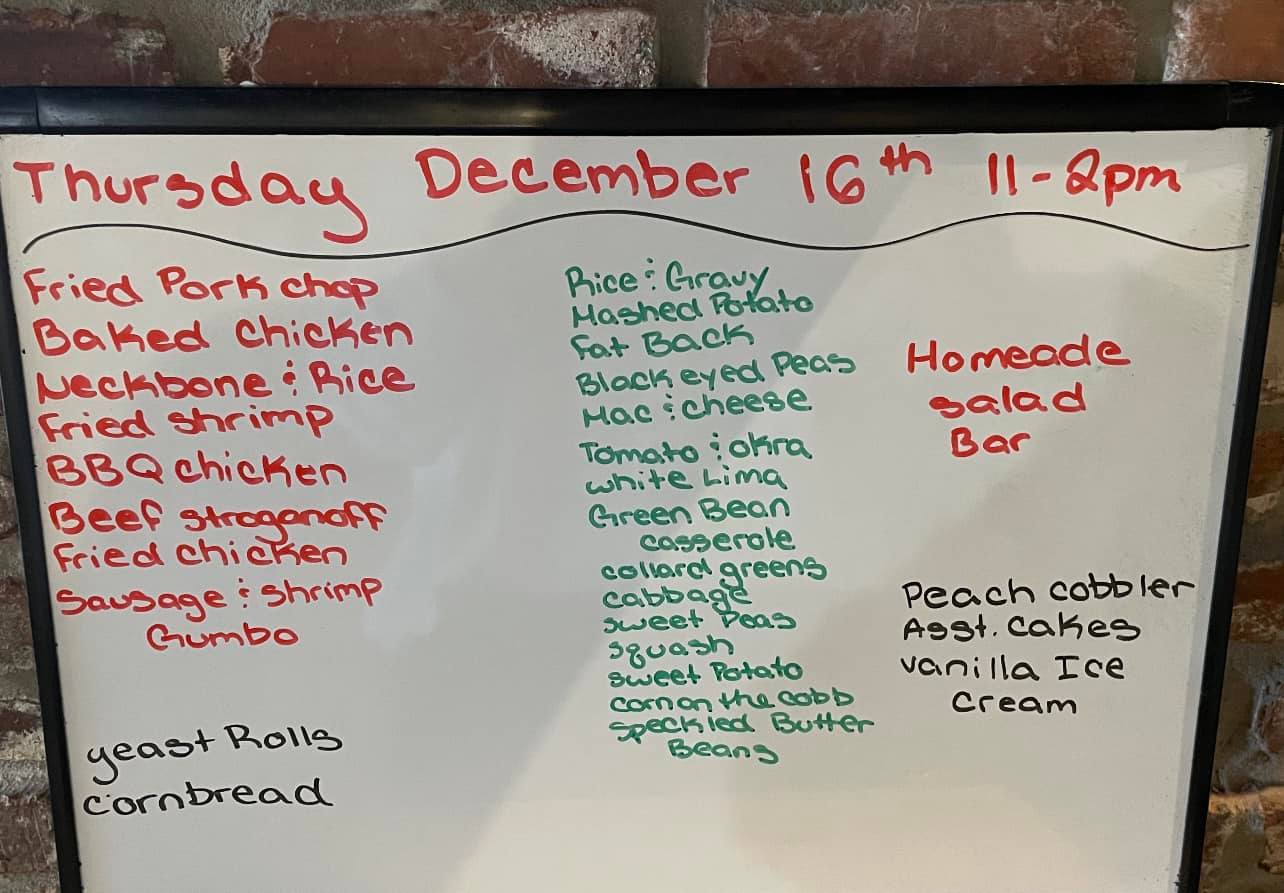 Thursday December 16th 11-2pm
Fried Pork chop
Baked chicken
Neckbone & Rice
Fried shrimp
BBQ chicken
Beef stroganoff
Fried chicken
Sausage & shrimp
Gumbo
yeast Rolls
cornbread
Rice & Gravy
Mashed Potato
Fat Back
Black eyed Peas
Mac & cheese
Tomato & okra
white Lima
Green Bean
casserole
collard greens
cabbage
sweet Peas
squash
sweet Potato
corn on the cobb
speckled Butter
Beans
Homeade
salad
Bar
Peach cobbler
Asst. cakes
vanilla Ice
cream